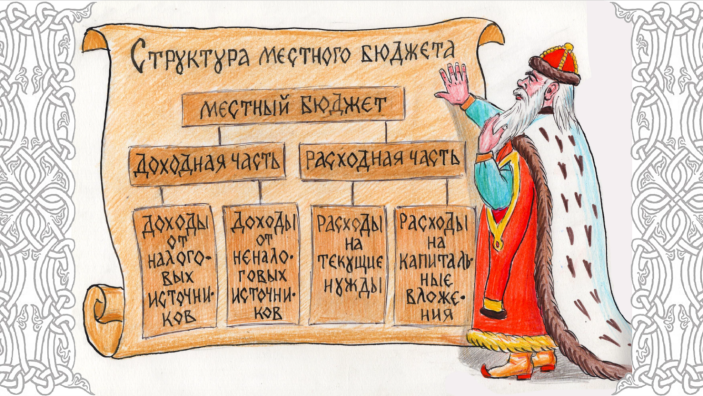 Структура местного бюджета
местный бюджет
доходная часть
расходная часть
доходы
от
налого-
вых
источни-
ков
доходы
от
ненало-
говых
источни-
ков
расходы
на
текущие
нужды
расходы
на
капиталь-
ные
вложе-
ния